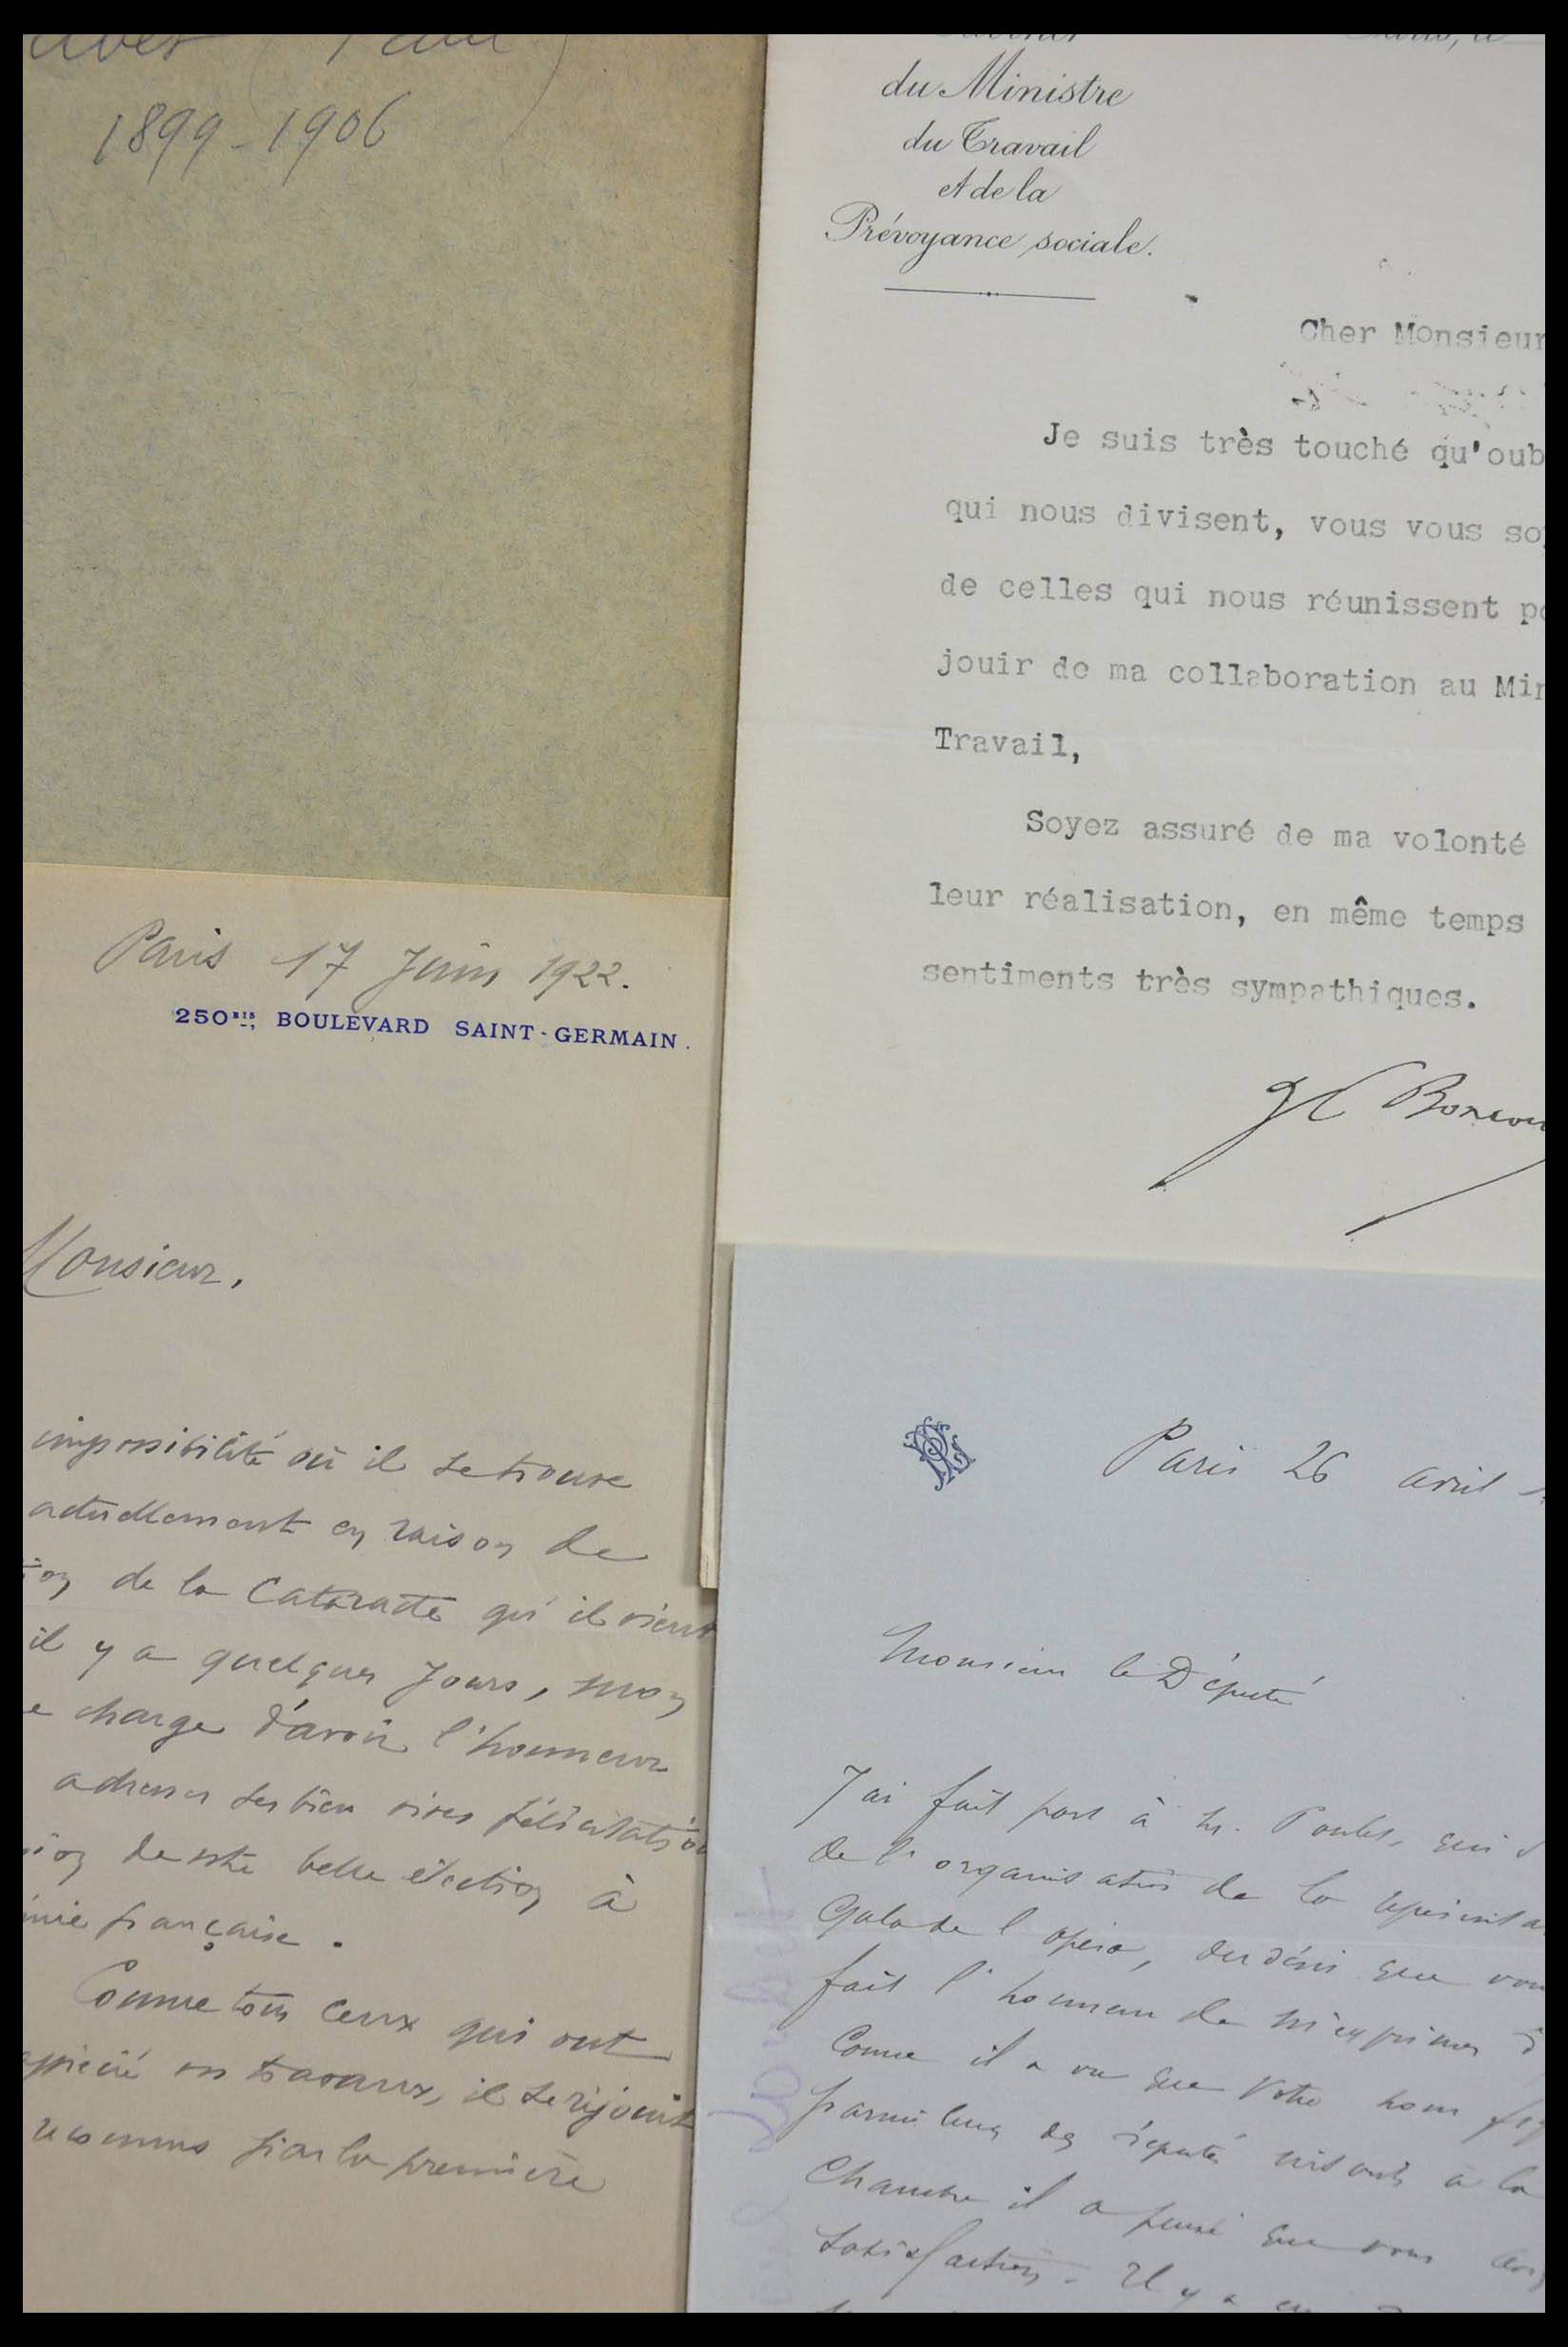 1899-1906
du Ministre
du Travail
et de la
Prévoyance sociale.
Cher Monsieur
Je suis très touché qu'oub
qui nous divisent, vous vous so
de celles qui nous réunissent p
jouir de ma collaboration au Min
Travail,
Soyez assuré de ma volonté
leur réalisation, en même temps
sentiments très sympathiques.
Paris 17 Juin 1922.
250BIS, BOULEVARD SAINT-GERMAIN.
Monsieur,
impossibilité où il se trouve
actuellement en raison de
de la Cataracte qu'il vient
il y a quelques jours, mon
charge d'avoir l'honneur
adresser ses bien vives félicitatio
de votre belle élection à
mie française.
Comme tous ceux qui ont
apprécié vos travaux, il se réjouit
par la première
Paris 26 avril
Monsieur le Député
J'ai fait part à M.
de l'organisation de la représenta
Gala de l'opéra, du désir que vou
fait l'honneur de m'exprimer
Comme il a vu que votre nom fig
parmi ceux des députés à la
Chambre il a pensé que vous
Satisfaction. Il y a